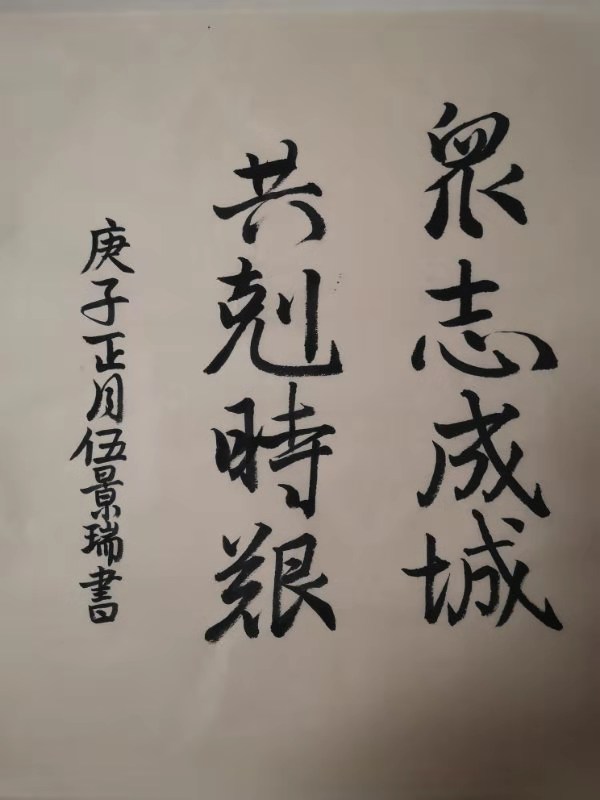 眾志成城
共剋時艱
庚子正月伍景瑞書